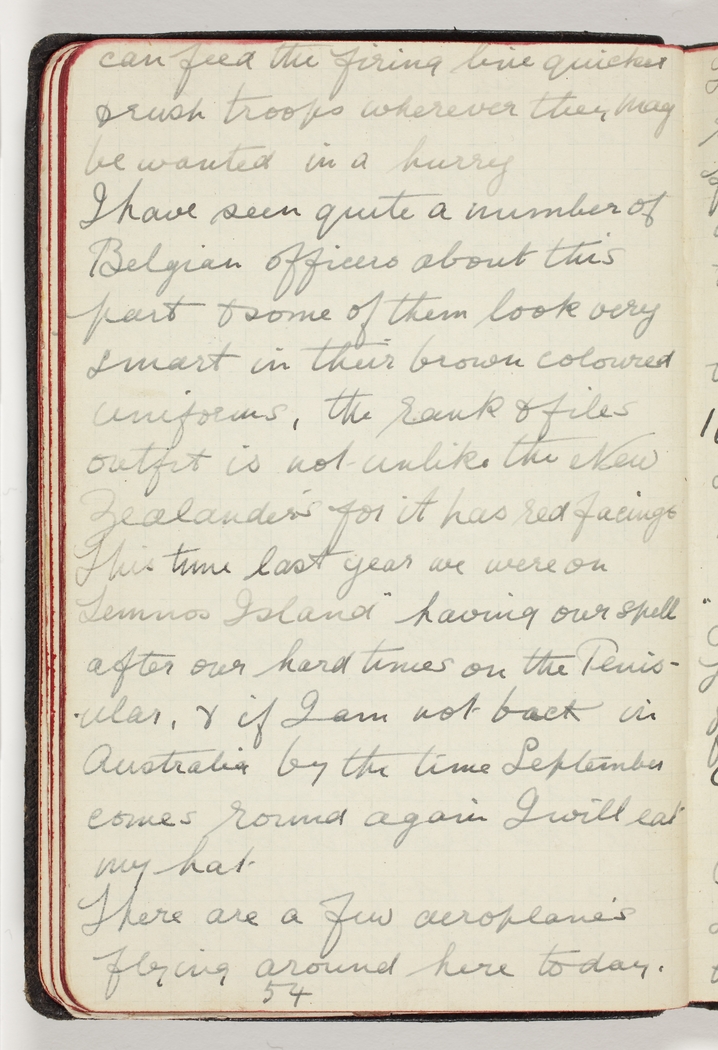 can feed the firing line quicker
& rush troops wherever they may
be wanted in a hurry
I have seen quite a number of
Belgian officers about this
part & some of them look very
smart in their brown coloured
uniforms, the rank & files
outfit is not unlike the New
Zealanders for it has red facings
This time last year we were on
Lemnos Island" having our spell
after our hard times on the Penis-
ular, & if I am not back in
Australia by the time September
comes round again I will eat
my hat.
There are a few aeroplanes
flying around here today.
54